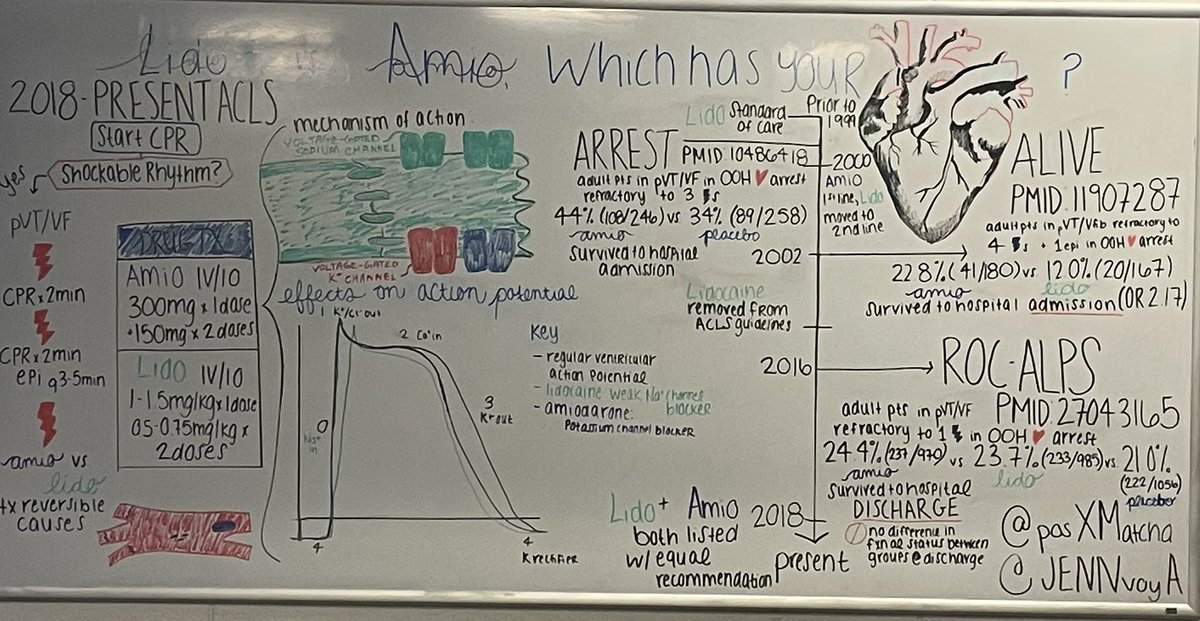 Lido vs Amio, Which has your ?
2018-PRESENT ACLS
Start CPR
yes
Shockable Rhythm?
pVT/VF
CPR x 2min
CPR x 2min
epi q3-5min
amio vs
lido
tx reversible
causes
DRUG TX
Amio IV/IO
300mg x 1dose
+150mg x 2doses
Lido IV/IO
1-1.5mg/kg x 1dose
0.5-0.75mg/kg x
2doses
mechanism of action:
VOLTAGE-GATED
SODIUM CHANNEL
VOLTAGE-GATED
K+ CHANNEL
effects on action potential
1 K+/Cl- out
2 Ca+ in
3
K+ out
0
Na+
in
4
4
K rectifier
Key
- regular ventricular
action potential
- lidocaine weak Na+ channel
blocker
- amiodarone:
Potassium channel blocker
Lido Standard
of care
Prior to
1999
ARREST
PMID: 10486418
adult pts in pVT/VF in OOH ♥ arrest
refractory to 3 s
44% (108/246) vs 34% (89/258)
amio placebo
survived to hospital
admission
2000
Amio
1st line, Lido
moved to
2nd line
2002
ALIVE
PMID: 11907287
adult pts in pVT/Vfib refractory to
4 s + 1 epi in OOH ♥ arrest
22.8% (41/180) vs 12.0% (20/167)
amio lido
survived to hospital admission (OR 2.17)
Lidocaine
removed from
ACLS guidelines
2016
ROC-ALPS
PMID: 27043165
adult pts in pVT/VF
refractory to 1 in OOH ♥ arrest
24.4% (237/970) vs 23.7% (233/985) vs 21.0%
(222/1056)
amio lido placebo
survived to hospital
DISCHARGE
no difference in
fxnal status between
groups @ discharge
Lido + Amio
both listed
w/ equal
recommendation
2018
present
@pasXMatcha
@JENNvoyA